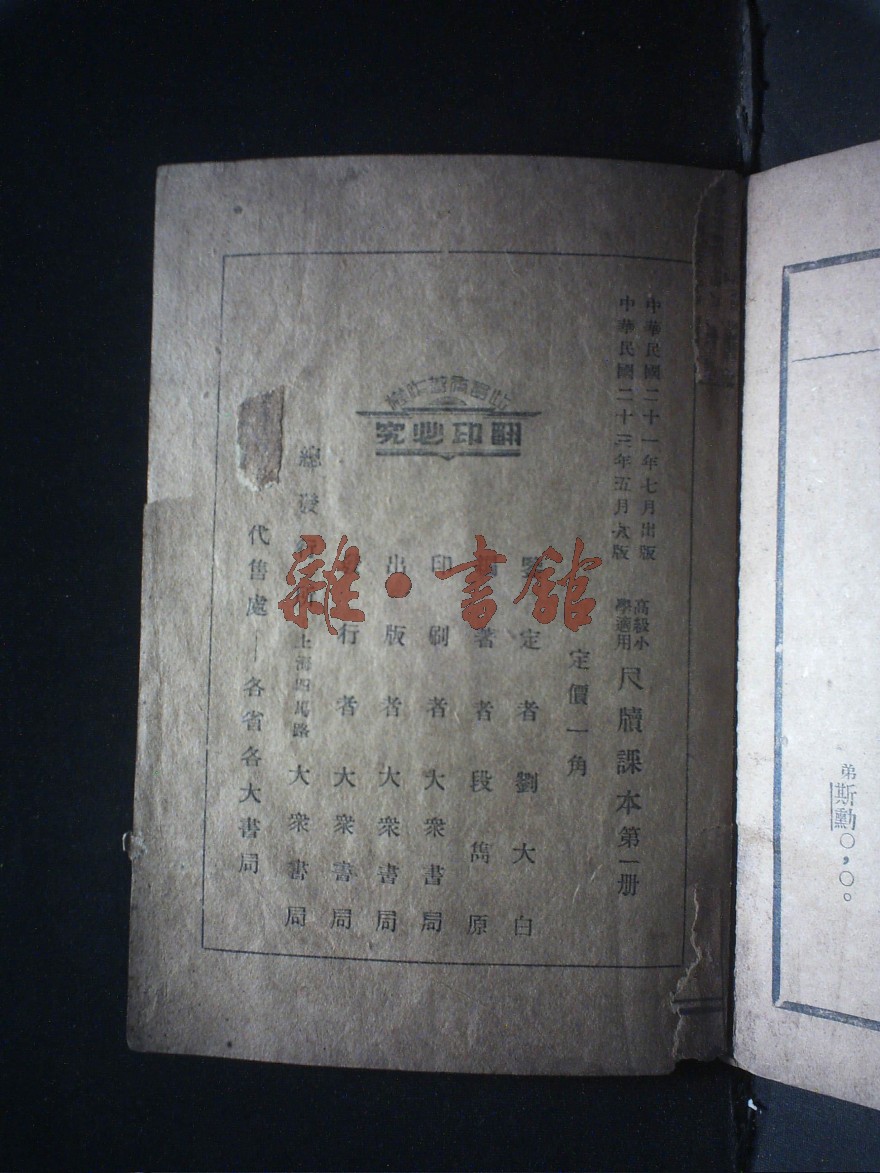 中華民國二十一年七月出版
中華民國二十三年五月六版
高級小學適用 尺牘課本第一册
定價一角
鑒定者劉大白
編著者段雋原
印刷者大衆書局
出版者大衆書局
發行者大衆書局
總發行所 上海四馬路 大衆書局
代售處——各省各大書局
翻印必究
雜·書館
弟斯勳〇，〇。